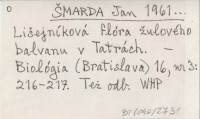 0
ŠMARDA Jan 1961...
Lišejníková flóra žulového
balvanu v Tatrách. –
Biológia (Bratislava) 16, nr3:
216-217. Též odb. WHP